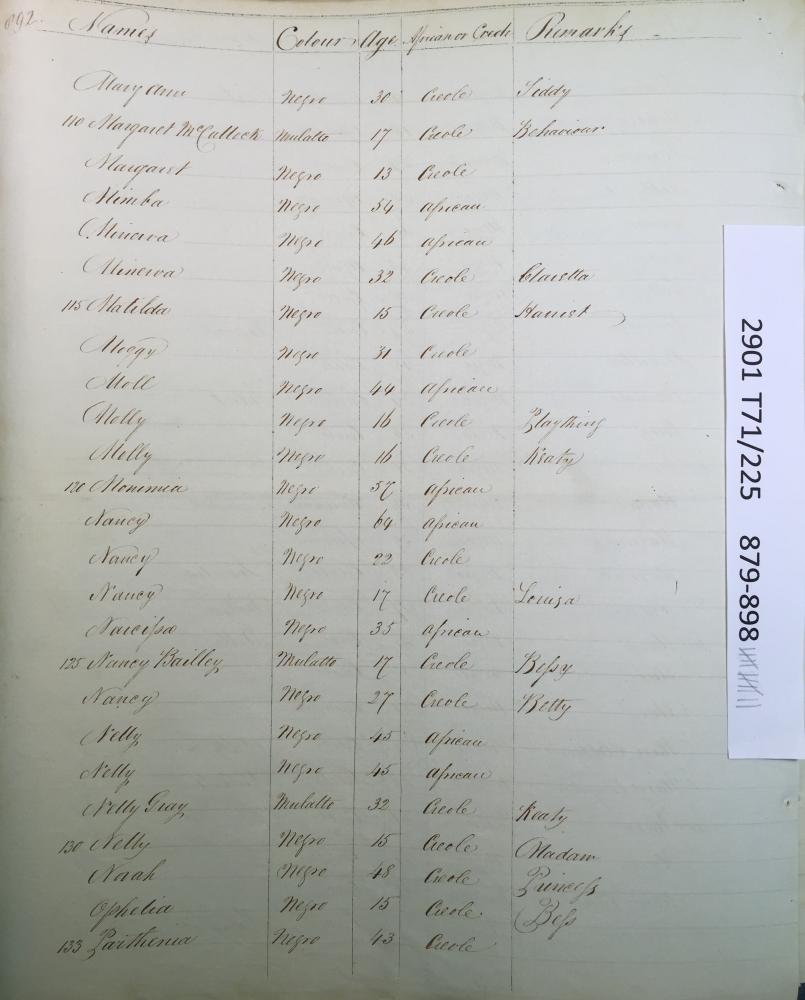 892.
Names Colour Age African or Creole Remarks
Mary Ann Negro 30 Creole Siddy
110 Margaret McCullock Mulatto 17 Creole Behaviour
Margaret Negro 13 Creole
Mimba Negro 54 African
Minerva Negro 46 African
Minerva Negro 32 Creole Claretta
115 Matilda Negro 15 Creole Harriet
Moogy Negro 31 Creole
Moll Negro 44 African
Molly Negro 16 Creole Plaything
Molly Negro 16 Creole Keaty
120 Monimia Negro 57 African
Nancy Negro 64 African
Nancy Negro 22 Creole
Nancy Negro 17 Creole Louisa
Narcissa Negro 35 African
125 Nancy Bailley Mulatto 17 Creole Bessy
Nancy Negro 27 Creole Betty
Nelly Negro 45 African
Nelly Negro 45 African
Nelly Gray Mulatto 32 Creole Keaty
130 Nelly Negro 15 Creole Madam
Noah Negro 48 Creole Princess
Ophelia Negro 15 Creole Bess
133 Parthenia Negro 43 Creole
2901 T71/225 879-898